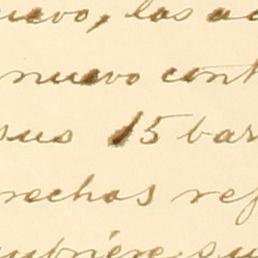 nuevo, las ac
nuevo cont
sus 15 bar
rechos ref
ubriere su